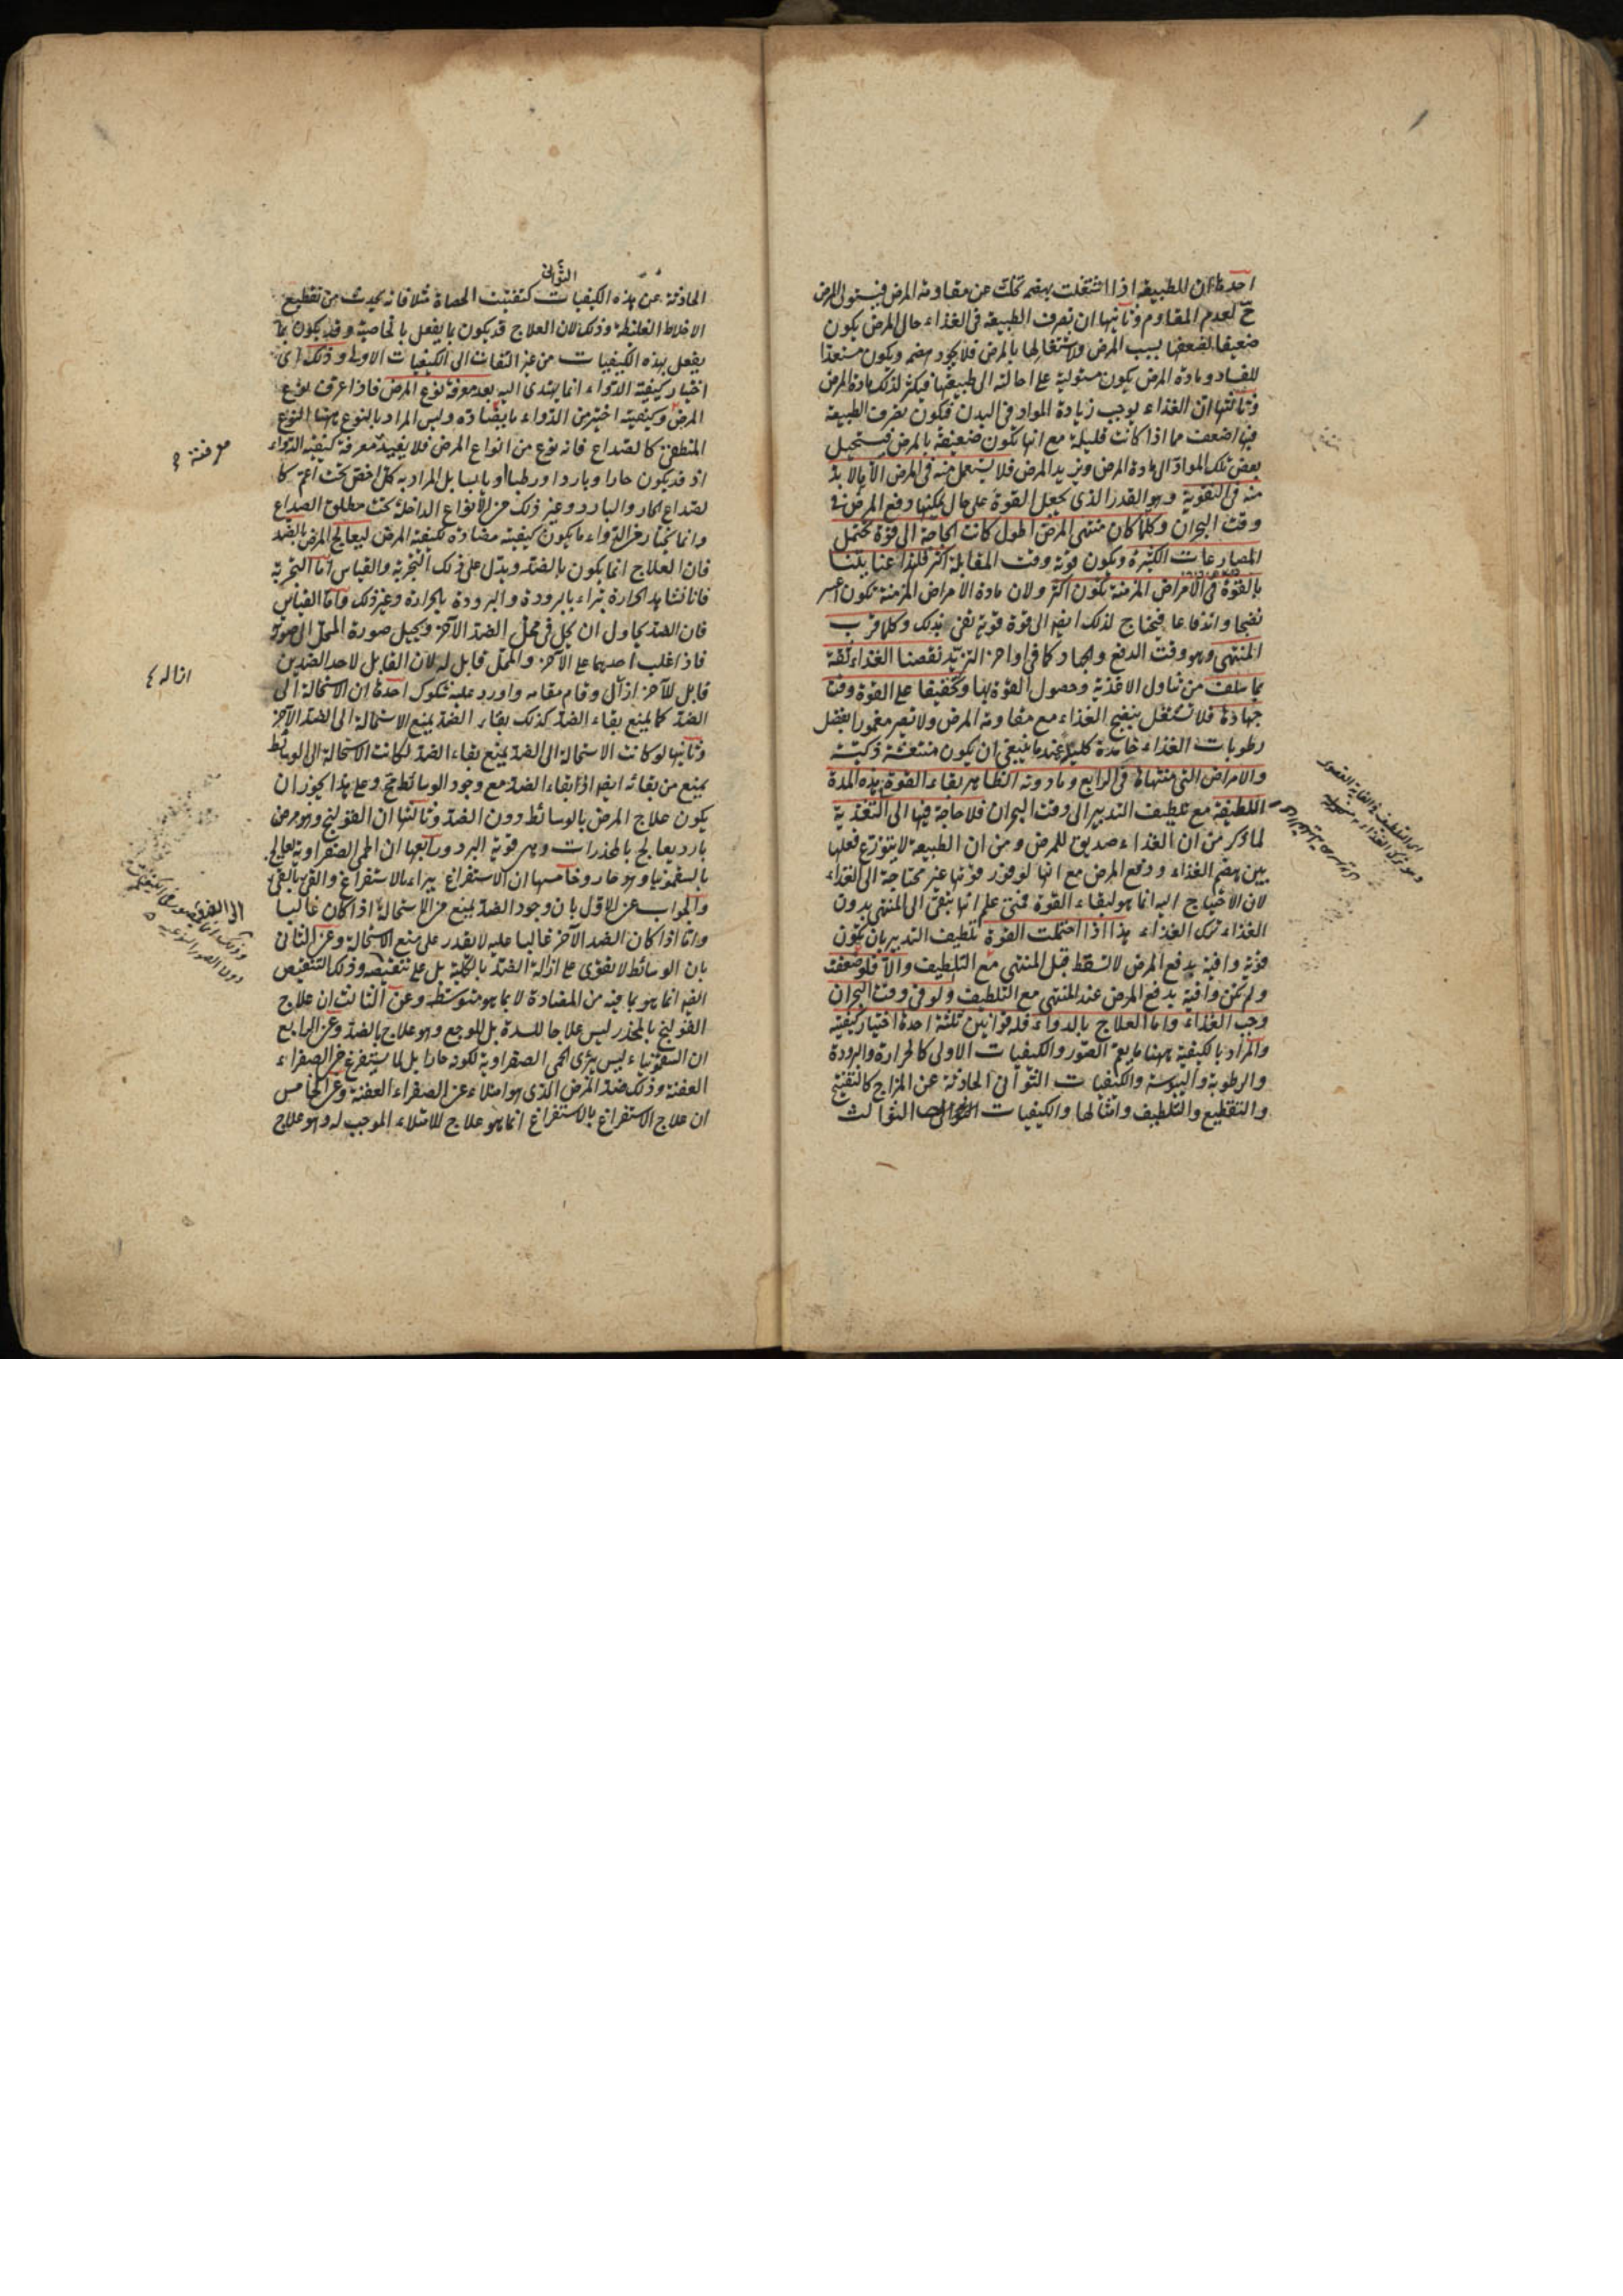 احدها ان للطبيعة اذا اشتغلت بهضمه تخلت عن مقاومة المرض فيستولى المرض
ح لعدم المقاوم وثانيها ان تصرف الطبيعة فى الغذاء حال المرض يكون
ضعيفا لضعفها بسبب المرض ولاشتغالها بالمرض فلا يجود هضمه ويكون مستعدا
للفساد ومادة المرض يكون مستولية على احالته الى طبيعتها فيكثر لذلك مادة المرض
وثالثها ان الغذاء يوجب زيادة المواد فى البدن فيكون تصرف الطبيعة
فيها اضعف مما اذا كانت قليلة مع انها تكون ضعيفة بالمرض فيستحيل
بعض تلك المواد الى مادة المرض ويزيد المرض فلا يستعمل منه فى المرض الا ما لا بد
منه فى التقوية وهو القدر الذى يجعل القوة على حال يمكنها دفع المرض فى
وقت البحران وكلما كان منتهى المرض اطول كانت الحاجة الى قوة تحتمل
المصارعات الكثيرة ويكون قوته وقت المقابلة اكثر فلهذا عنايتنا
بالقوة فى الامراض المزمنة يكون اكثر ولان مادة الامراض المزمنة تكون اعسر
نضجا واندفاعا فيحتاج لذلك ايضا الى قوة قوية تفى بذلك وكلما قرب
المنتهى وهو وقت الدفع والجهاد كما فى اواخر التزيد نقصنا الغذاء ثقة
بما سلف من تناول الاغذية وحصول القوة بها وتخفيفا على القوة وقت
جهادها فلا تشتغل بنضج الغذاء مع مقاومة المرض ولا تصير مغمورا بفضل
رطوبات الغذاء خامدة كليلة عندما ينبغى ان يكون منتعشة ذكية
والامراض التى منتهاها فى الرابع وما دونه الظاهر بقاء القوة بهذه المدة
اللطيفة مع تلطيف التدبير الى وقت البحران فلا حاجة فيها الى التغذية
لما ذكر من ان الغذاء صديق للمرض ومن ان الطبيعة لا يتوزع فعلها
بين هضم الغذاء ودفع المرض مع انها لوفور قوتها غير محتاجة الى الغذاء
لان الاحتياج اليه انما هو لبقاء القوة فمتى علم انها تبقى الى المنتهى بدون
الغذاء ترك الغذاء هذا اذا احتملت القوة تلطيف التدبير بان يكون
قوية وافية بدفع المرض لا تسقط قبل المنتهى مع التلطيف والا فلو ضعفت
ولم تكن وافية بدفع المرض عند المنتهى مع التلطيف ولو فى وقت البحران
وجب الغذاء واما العلاج بالدواء فله قوانين ثلثة احدها اختيار كيفيته
والمراد بالكيفية ههنا ما يعم الصور والكيفيات الاولى كالحرارة والبرودة
والرطوبة واليبوسة والكيفيات الثوانى الحادثة عن المزاج كالتفتيح
والتقطيع والتلطيف وامثالها والكيفيات الثوالث
الثوانى
الحادثة عن هذه الكيفيات كتفتيت الحصاة مثلا فانه يحدث من تقطيع
الاخلاط الغليظة وذلك لان العلاج قد يكون بما يفعل بالخاصية وقد يكون بما
يفعل بهذه الكيفيات من غير التفات الى الكيفيات الاول وذلك اى
اختيار كيفية الدواء انما يهتدى اليه بعد معرفة نوع المرض فاذا عرف نوع
المرض وكيفيته اختير من الدواء ما يضاده وليس المراد بالنوع ههنا النوع
المنطقى كالصداع فانه نوع من انواع المرض فلا يفيد معرفة كيفية الدواء
اذ قد يكون حارا وباردا ورطبا او يابسا بل المراد به كل اخص تحت اعم كا
لصداع الحار والبارد وغير ذلك من الانواع الداخلة تحت مطلق الصداع
وانما يختار من الدواء ما يكون كيفيته مضادة لكيفية المرض ليعالج المرض بالضد
فان العلاج انما يكون بالضد ويدل على ذلك التجربة والقياس اما التجربة
فانا نشاهد الحارة تبراء بالبرودة والبرودة بالحرارة وغير ذلك واما القياس
فان الضد يحاول ان يحل فى محل الضد الآخر ويحيل صورة المحل الى صورته
فاذا غلب احدهما على الآخر والمحل قابل له لان القابل لاحد الضدين
قابل للآخر ازال وقام مقامه واورد عليه شكوك احدها ان الاستحالة الى
الضد كما يمنع بقاء الضد كذلك بقاء الضد يمنع الاستحالة الى الضد الآخر
وثانيها لو كانت الاستحالة الى الضد يمنع بقاء الضد لكانت الاستحالة الى الوسائط
يمنع من بقائه ايضا اذ ابقاء الضد مع وجود الوسائط مح وعلى هذا يجوز ان
يكون علاج المرض بالوسائط دون الضد وثالثها ان القولنج وهو مرض
بارد يعالج بالمخدرات وهى قوية البرد ورابعها ان الحمى الصفراوية تعالج
بالسقمونيا وهو حار وخامسها ان الاستفراغ يبراء بالاستفراغ والقى بالقى
والجواب عن الاول بان وجود الضد يمنع من الاستحالة اذا كان غالبا
واما اذا كان الضد الآخر غالبا عليه لا يقدر على منع الاستحالة وعن الثانى
بان الوسائط لا يقوى على ازالة الضد بالكلية بل على تنقيصه وذلك التنقيص
ايضا انما هو بما فيه من المضادة لا بما هو متوسط وعن الثالث ان علاج
القولنج بالمخدر ليس علاجا للسدة بل للوجع وهو علاج بالضد وعن الرابع
ان السقمونياء ليس يبرى الحمى الصفراوية لكونه حارا بل لما يستفرغ من الصفراء
العفنة وذلك ضد المرض الذى هو امتلاء عن الصفراء العفنة وعن الخامس
ان علاج الاستفراغ بالاستفراغ انما هو علاج للامتلاء الموجب له وهو علاج
معرفته
ازاله